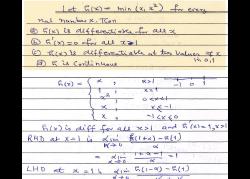 Let h(x) = min (x, x²) for every
real number x. Then
(a) h(x) is differentiable for all x
(b) h'(x) = 0 for all x>1
(c) h(x) is differentiable at two values of x
in 0,1
(d) h is continuous
-1 0 1
h(x) = x , x>1
x² ,
, 0<x<1
x , x<-1
x , -1<x<0
h(x) is diff for all x>1 and h'(x)=1, x>1
RHD at x=1 is lim h(1+α) - h(1)
α→0 α
= lim 1+α-1 = 1
α→0 α
LHD at x=1 is lim h(1-α) - h(1)